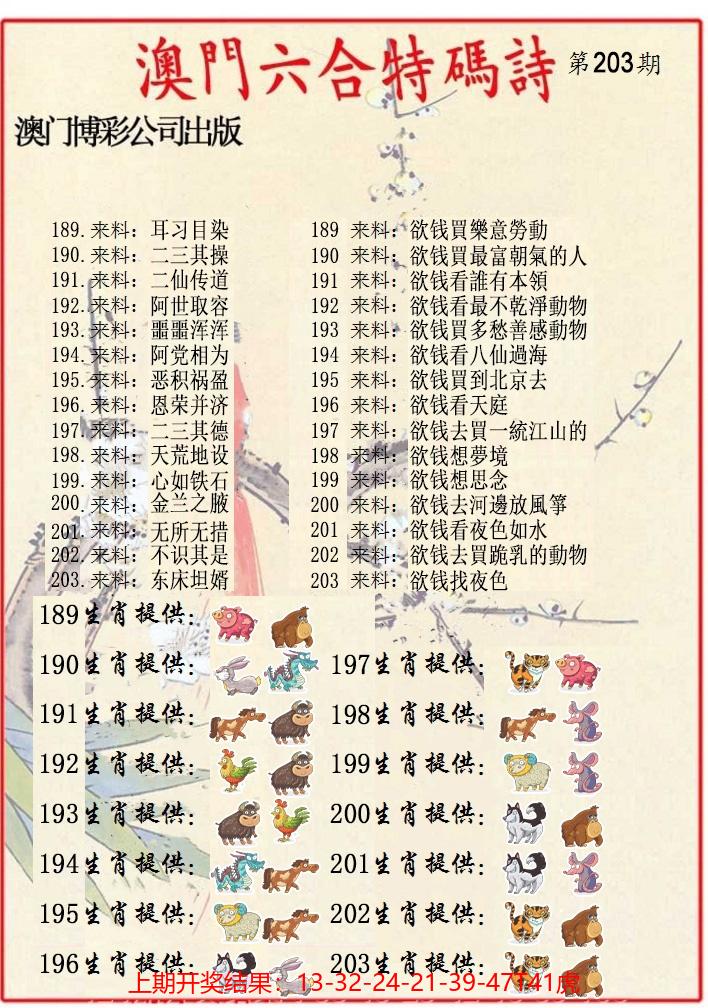 澳門六合特碼詩 第203期
澳门博彩公司出版
189.来料：耳习目染
190.来料：二三其操
191.来料：二仙传道
192.来料：阿世取容
193.来料：噩噩浑浑
194.来料：阿党相为
195.来料：恶积祸盈
196.来料：恩荣并济
197.来料：二三其德
198.来料：天荒地设
199.来料：心如铁石
200.来料：金兰之腋
201.来料：无所无措
202.来料：不识其是
203.来料：东床坦婿
189 来料：欲钱買樂意勞動
190 来料：欲钱買最富朝氣的人
191 来料：欲钱看誰有本領
192 来料：欲钱看最不乾淨動物
193 来料：欲钱買多愁善感動物
194 来料：欲钱看八仙過海
195 来料：欲钱買到北京去
196 来料：欲钱看天庭
197 来料：欲钱去買一統江山的
198 来料：欲钱想夢境
199 来料：欲钱想思念
200 来料：欲钱去河邊放風箏
201 来料：欲钱看夜色如水
202 来料：欲钱去買跪乳的動物
203 来料：欲钱找夜色
189生肖提供：
190生肖提供：
191生肖提供：
192生肖提供：
193生肖提供：
194生肖提供：
195生肖提供：
196生肖提供：
197生肖提供：
198生肖提供：
199生肖提供：
200生肖提供：
201生肖提供：
202生肖提供：
203生肖提供：
上期开奖结果：13-32-24-21-39-47141虎